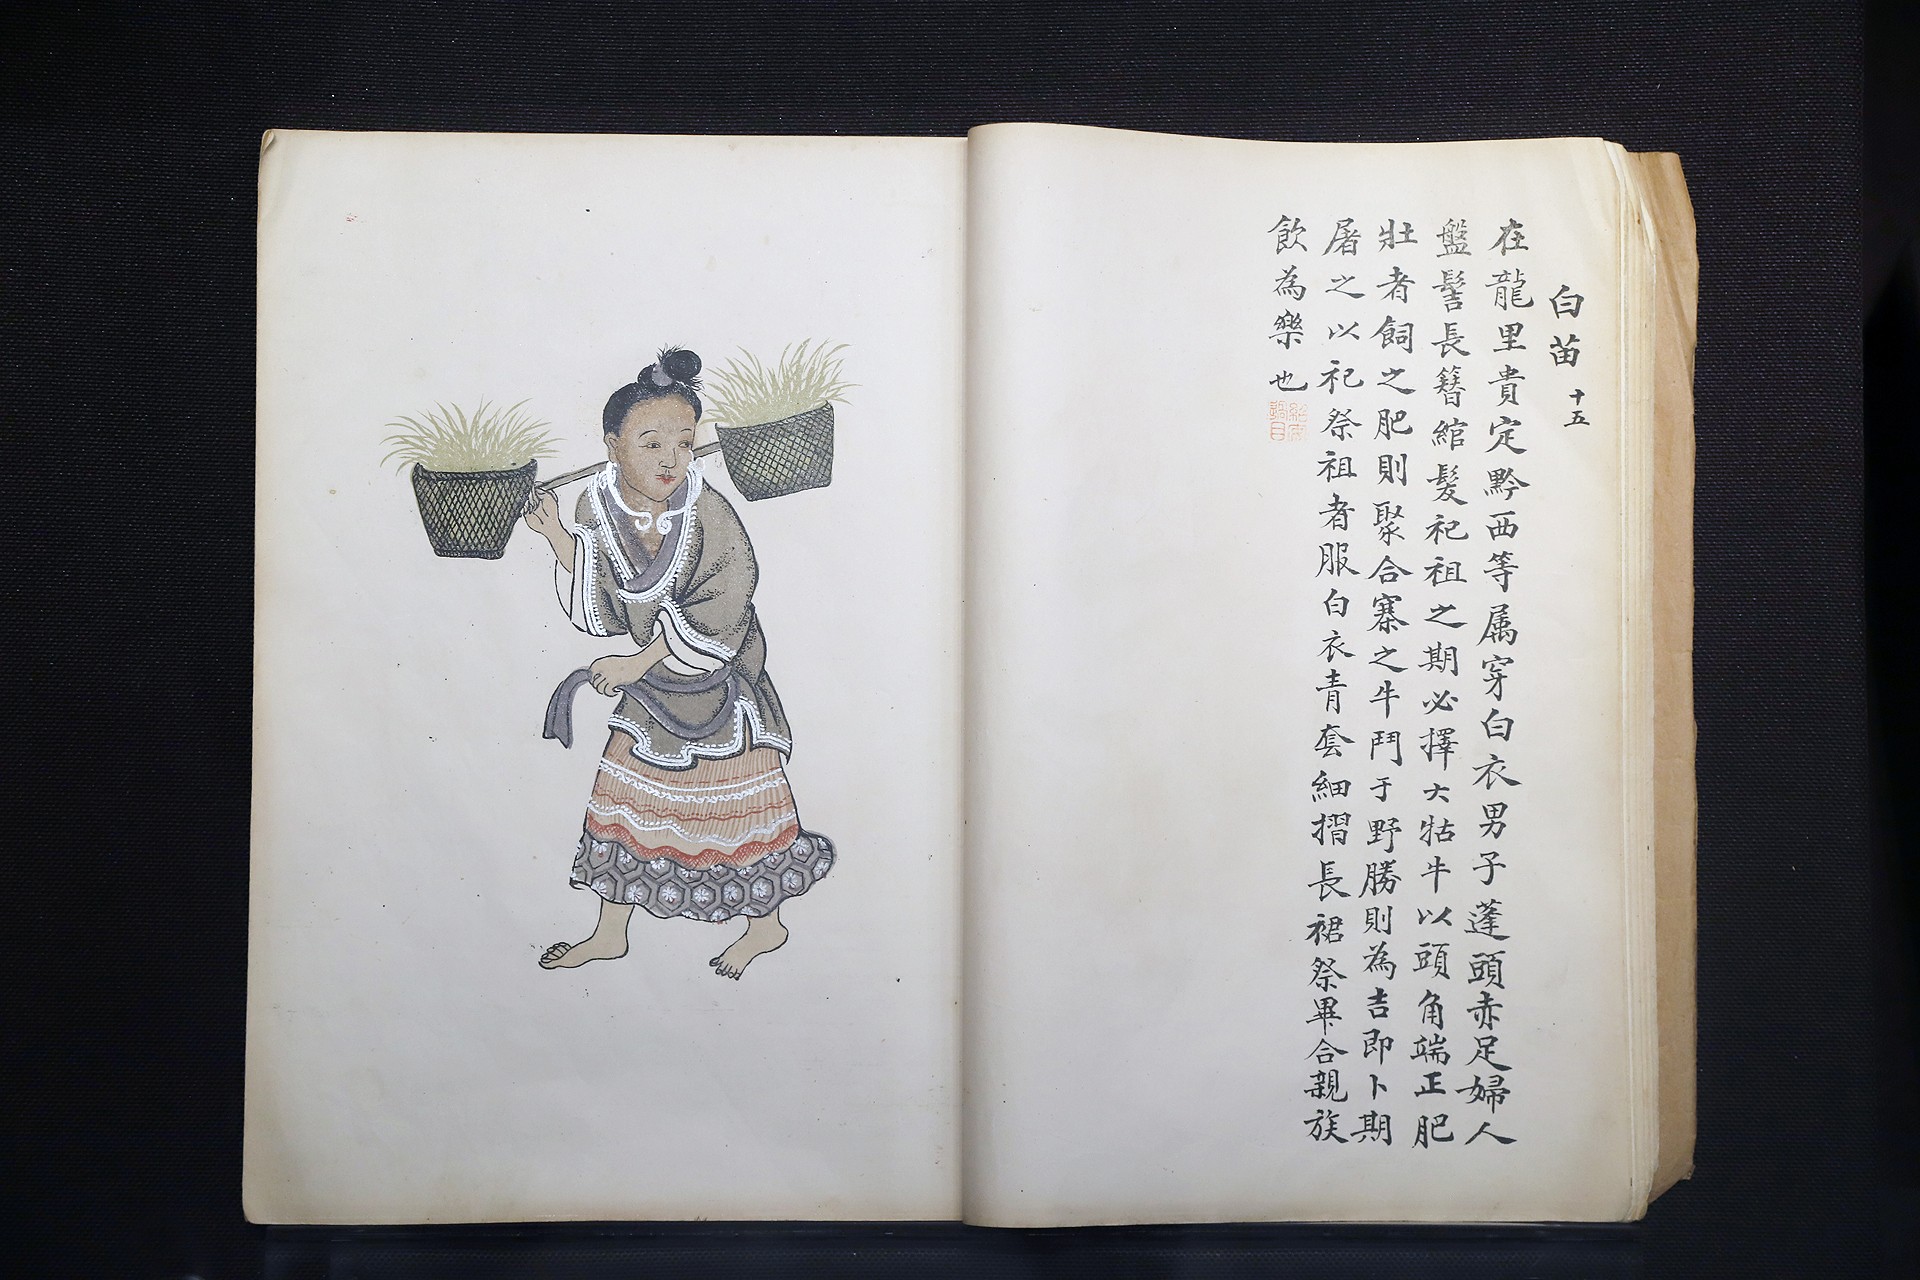 白苗 十五
在龍里貴定黔西等属穿白衣男子蓬頭赤足婦人
盤髻長簪綰髮祀祖之期必擇大牯牛以頭角端正肥
壯者飼之肥則聚合寨之牛鬥于野勝則為吉即卜期
屠之以祀祭祖者服白衣青套細摺長裙祭畢合親族
飲為樂也